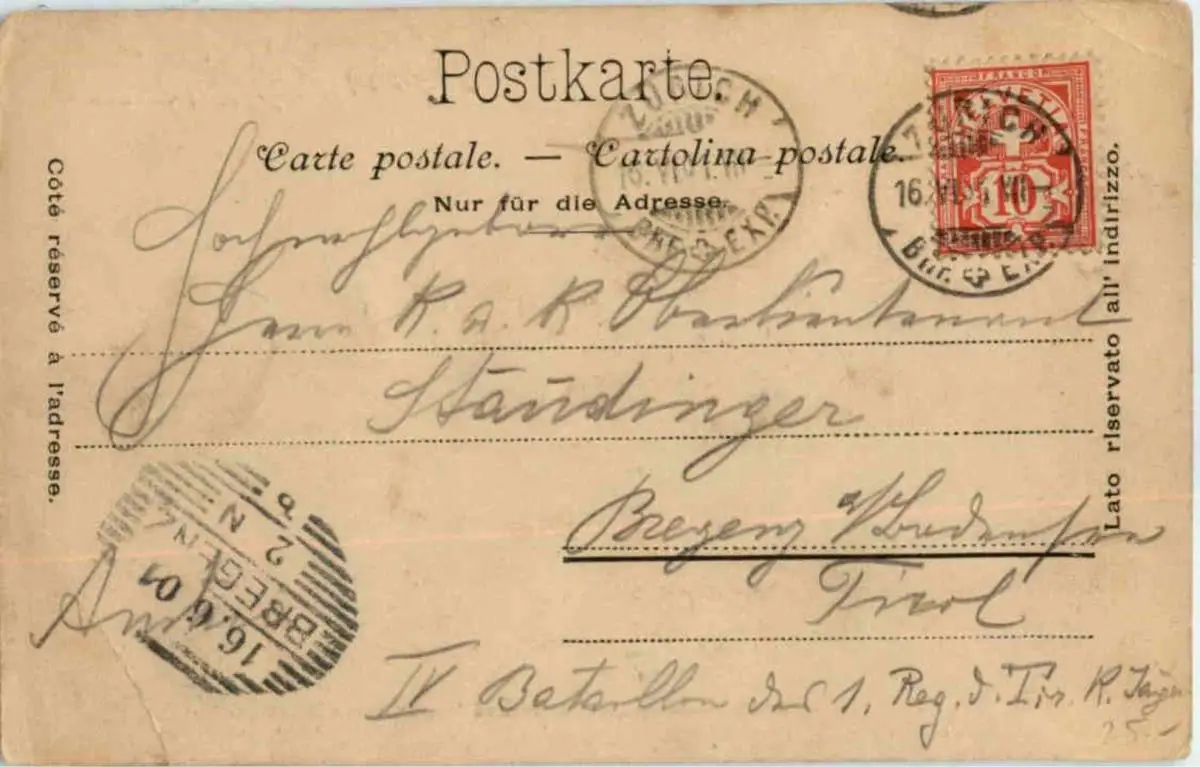 Postkarte.
Carte postale. — Cartolina postale.
Nur für die Adresse.
Côté réservé à l'adresse.
Lato riservato all' indirizzo.
ZÜRICH
16. VI.
BRF. EXP.
FRANCO
HELVETIA
10
ZÜRICH
16. VI. VII
BRF. EXP.
Hochwohlgeboren
Herrn K. u. K. Oberlieutenant
Staudinger
Bregenz a/Bodensee
Tirol
IV Bataillon des 1. Reg. d. Tir. K. Jäger
25.-
BREGENZ
16.6 01
2 N